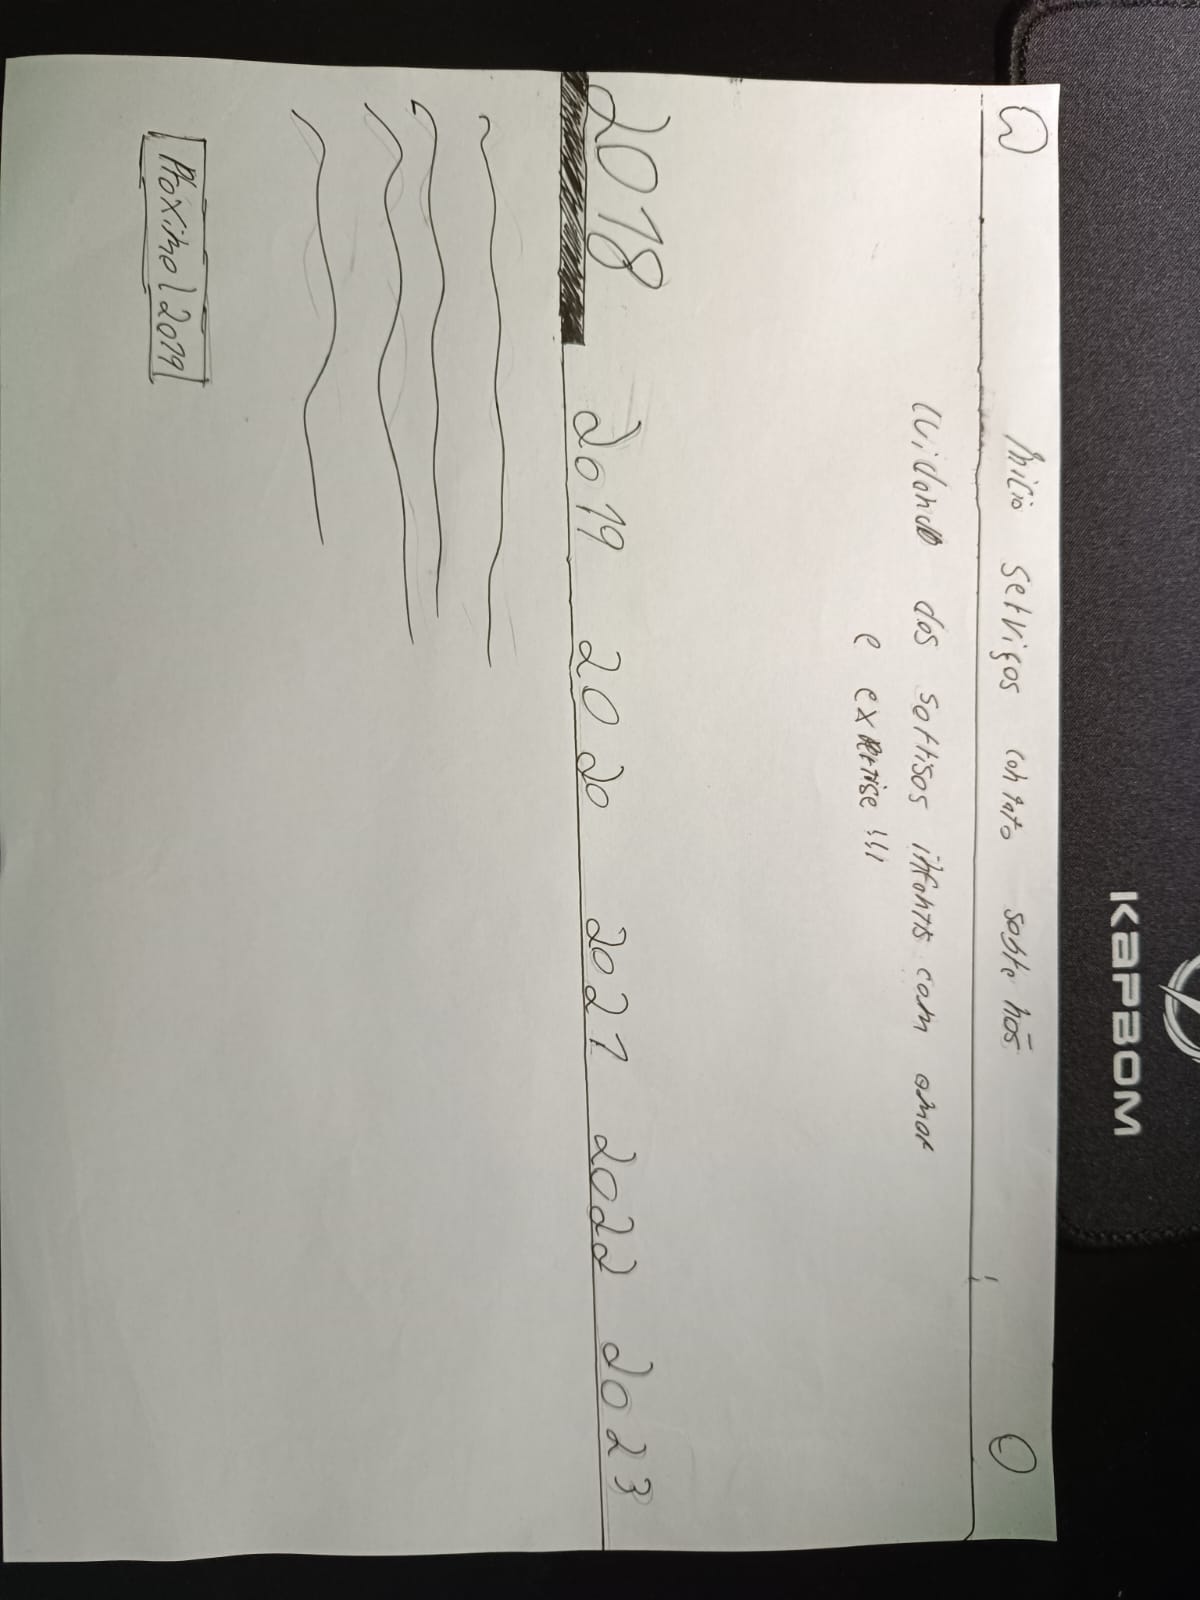 Início serviços contato sobre nós
Cuidando dos sorrisos infantis com amor
e expertise !!!
2018 2019 2020 2021 2022 2023
Próximo | 2019
KAPBOM